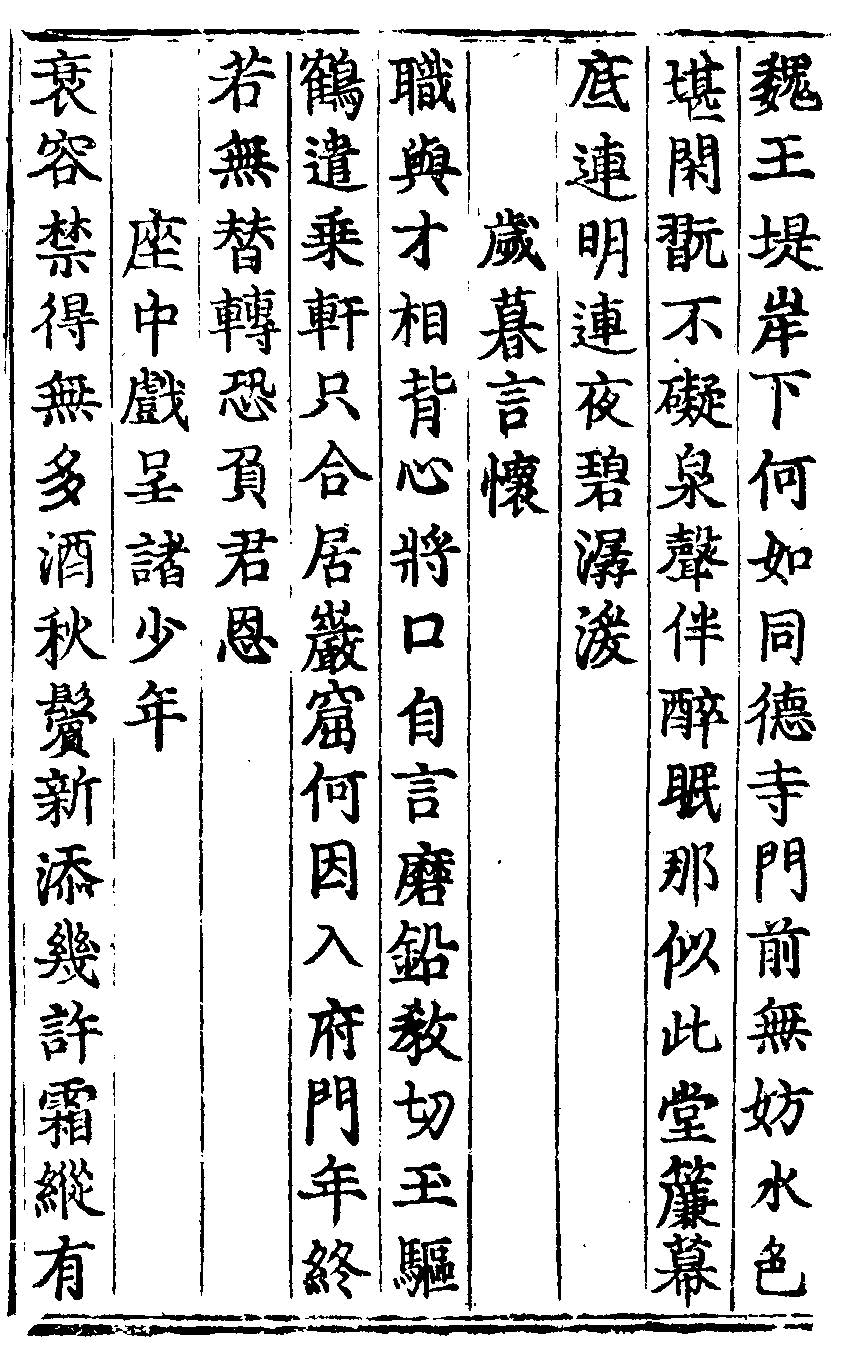 魏王堤岸下何如同德寺門前無妨水色
堪閑翫不礙泉聲伴醉眠那似此堂簾幕
底連明連夜碧潺湲
歲暮言懷
職與才相背心將口自言磨鉛教切玉驅
鶴遣乗軒只合居巖窟何因入府門年終
若無替轉恐負君恩
座中戲呈諸少年
衰容禁得無多酒秋鬢新添幾許霜縱有